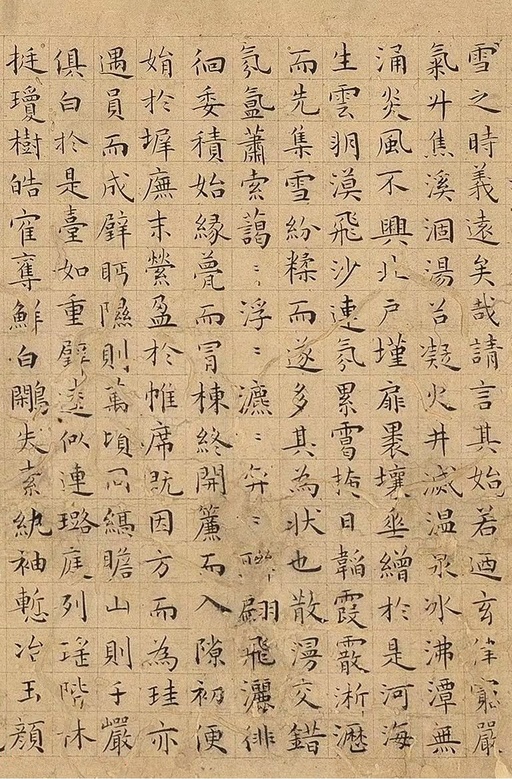 雪之時義遠矣哉請言其始若迺玄律窮嚴
氣升焦溪涸湯谷凝火井滅溫泉冰沸潭無
涌炎風不興北戶墐扉裸壤垂繒於是河海
生雲朔漠飛沙連氛累霭掩日韜霞霰淅瀝
而先集雪紛糅而遂多其為狀也散漫交錯
氛氳蕭索藹〻浮〻瀌〻弈〻聯翩飛灑徘
徊委積始緣甍而冐棟終開簾而入隙初便
娟於墀廡末縈盈於帷席既因方而為珪亦
遇員而成璧眄隰則萬頃同縞瞻山則千巖
俱白於是臺如重璧逵似連璐庭列瑤階林
挺瓊樹皓寉奪鮮白鷴失素紈袖慙冶玉顏